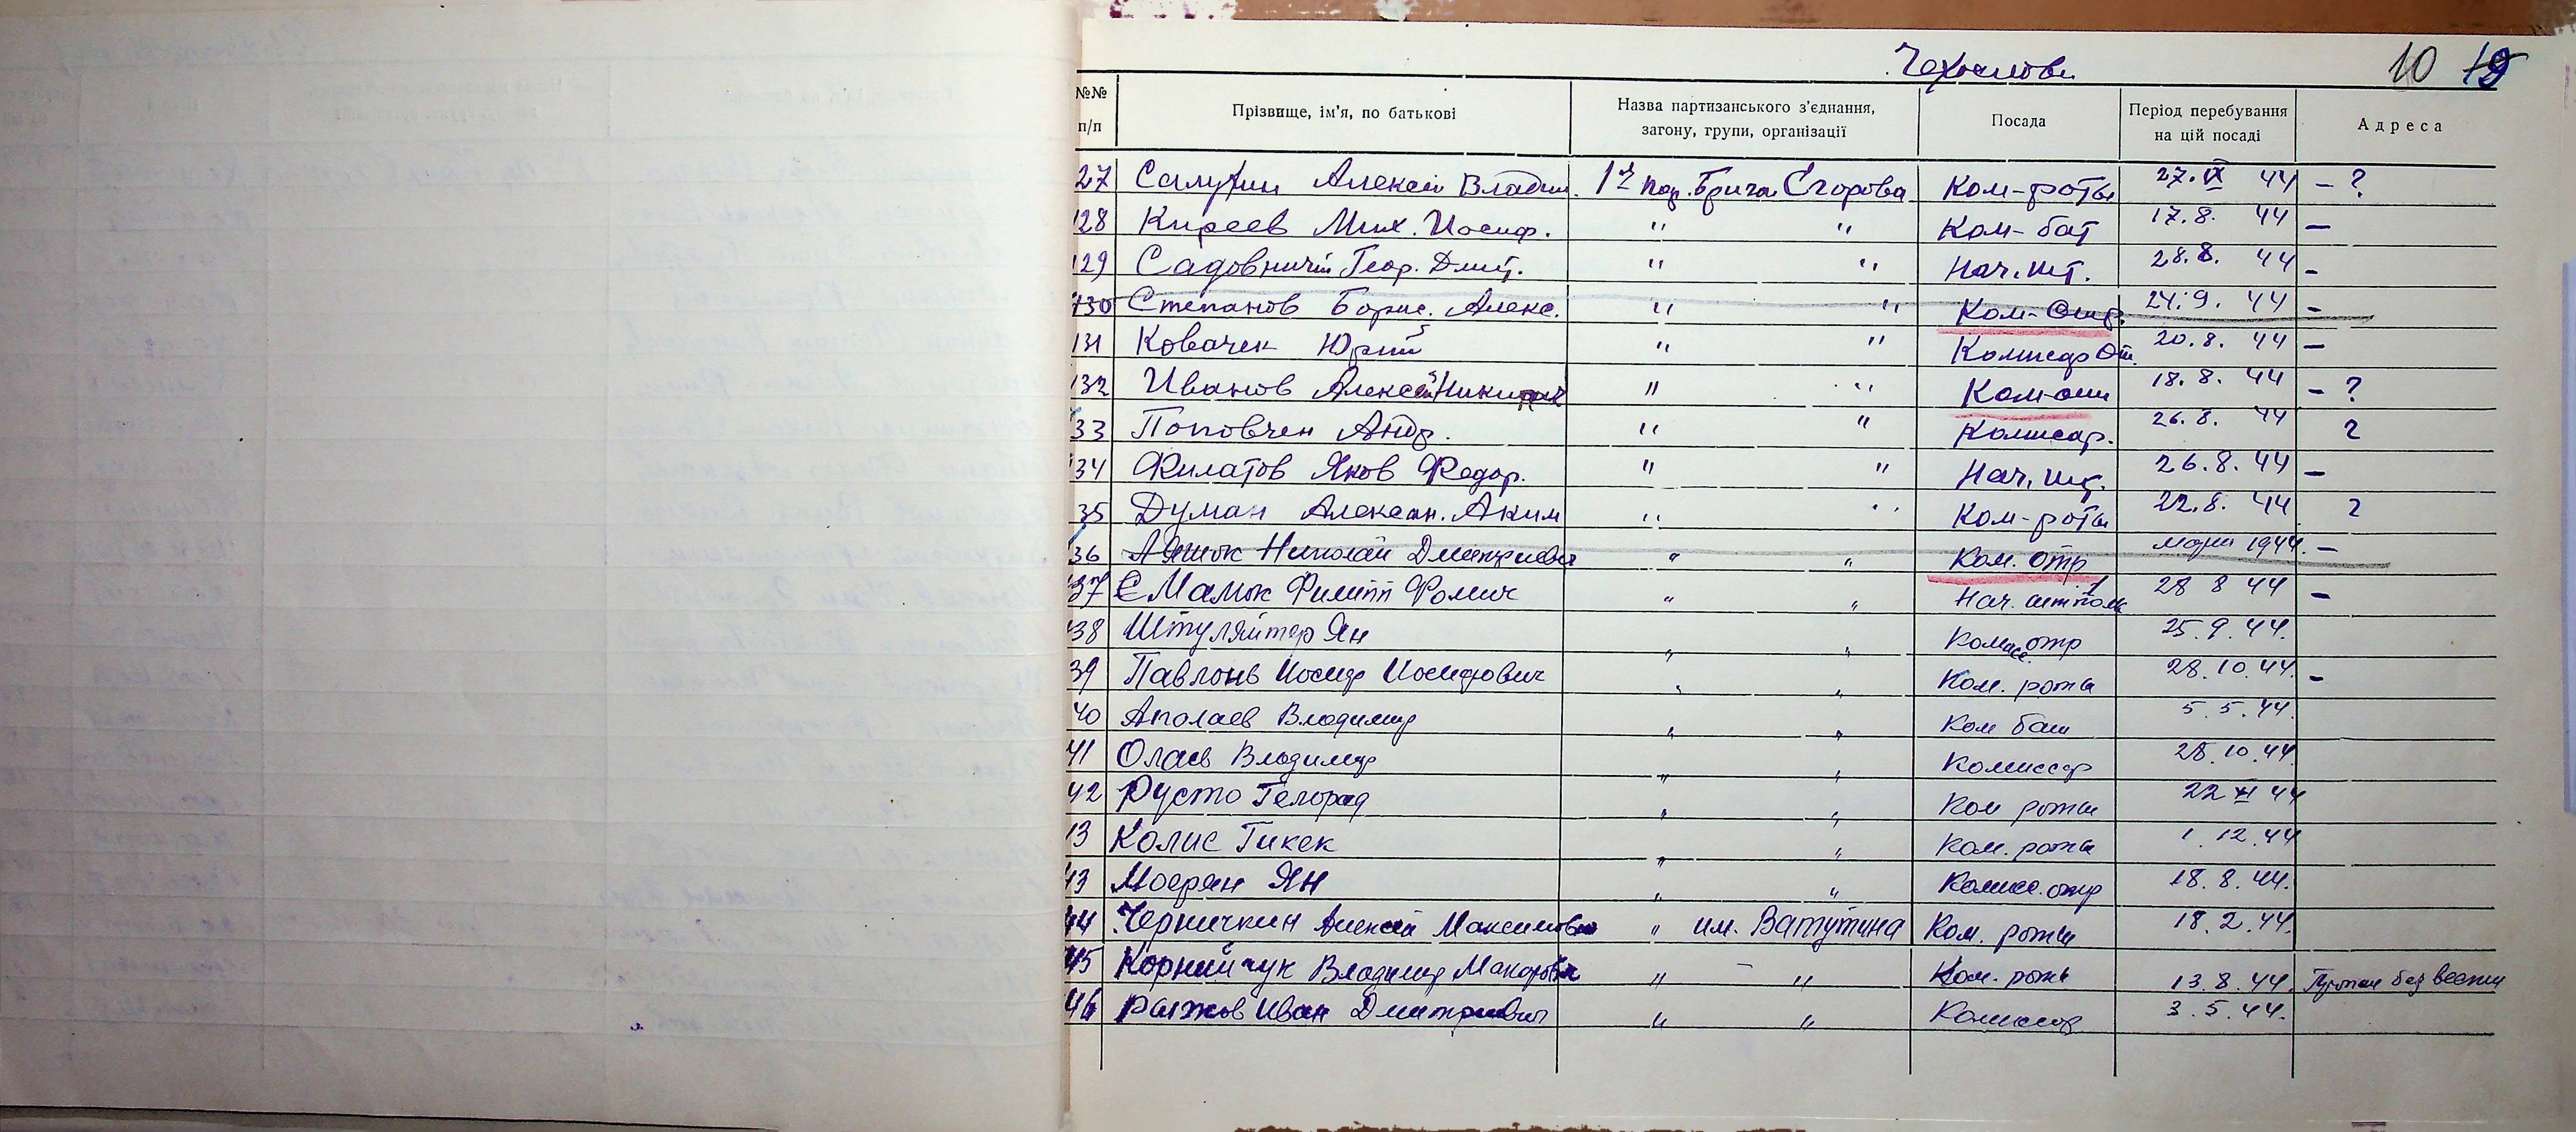 Чехослов.
10 19
№№ п/п Прізвище, ім'я, по батькові Назва партизанського з'єднання, загону, групи, організації Посада Період перебування на цій посаді Адреса
27 Алексей Владим. 1я пар. Брига Егорова Ком-роты 27.IX 44 - ?
128 Киреев Мих. Иосиф. " " Ком-бат 17.8. 44 -
129 Садовничий Геор. Дмит. " " Нач. шт. 28.8. 44 -
130 Степанов Борис. Алекс. " " Ком-Отр. 24.9. 44 -
131 Ковачек Юрий " " Комисар От. 20.8. 44 -
132 Иванов Алексей " " Ком-отр 18.8. 44 - ?
33 Поповчен Андр. " " Комисар. 26.8. 44 ?
134 Филатов Яков Федор. " " Нач. шт. 26.8.44 -
35 Думан Алексан. Аким " " Ком-роты 22.8. 44 ?
36 Николай Дмитриевич " " Ком. отр 1944. -
137 Мамок Филипп Фомич " " Нач. 28 8 44 -
38 Штуляйтер Ян " " Комисс. отр 25.9.44.
39 Иосиф Иосифович " " Ком. роты 28.10.44. -
40 Аполаев Владимир " " Ком бат 5.5.44.
41 Олаев Владимир " " Комиссар 28.10.44.
42 Русто Гелорад " " Ком роты 22 44
13 Колис Гикек " " Ком. роты 1.12.44
43 Ян " " Комисс. отр 18.8.44.
44 Черничкин Алексей Максимович " им. Ватутина Ком. роты 18.2.44.
45 Корнийчук Владимир Макарович " - " Ком. роты 13.8.44. Пропал без вести
46 Рыжов Иван Дмитриевич " " Комиссар 3.5.44.